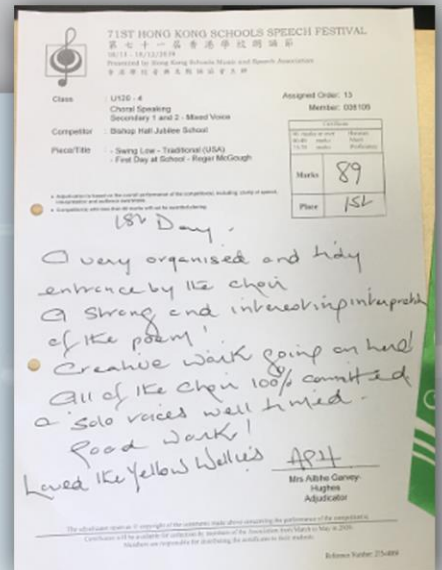 71ST HONG KONG SCHOOLS SPEECH FESTIVAL
第七十一屆香港學校朗誦節
Presented by Hong Kong Schools Music and Speech Association
香港學校音樂及朗誦協會主辦
Class : U120 - 4
Assigned Order: 13
Choral Speaking
Secondary 1 and 2 - Mixed Voice
Competitor : Bishop Hall Jubilee School
Piece/Title : - Swing Low - Traditional (USA)
- First Day at School - Roger McGough
Certificate
Marks 89
Place 1st
1st Day.
A very organised and tidy
entrance by the choir
A strong and interesting
of the poem!
Creative work going on here!
All of the choir 100% committed
Solo voices well timed.
Good work!
Loved the Yellow Wellies
Mrs Ailbhe Garvey-
Hughes
Adjudicator